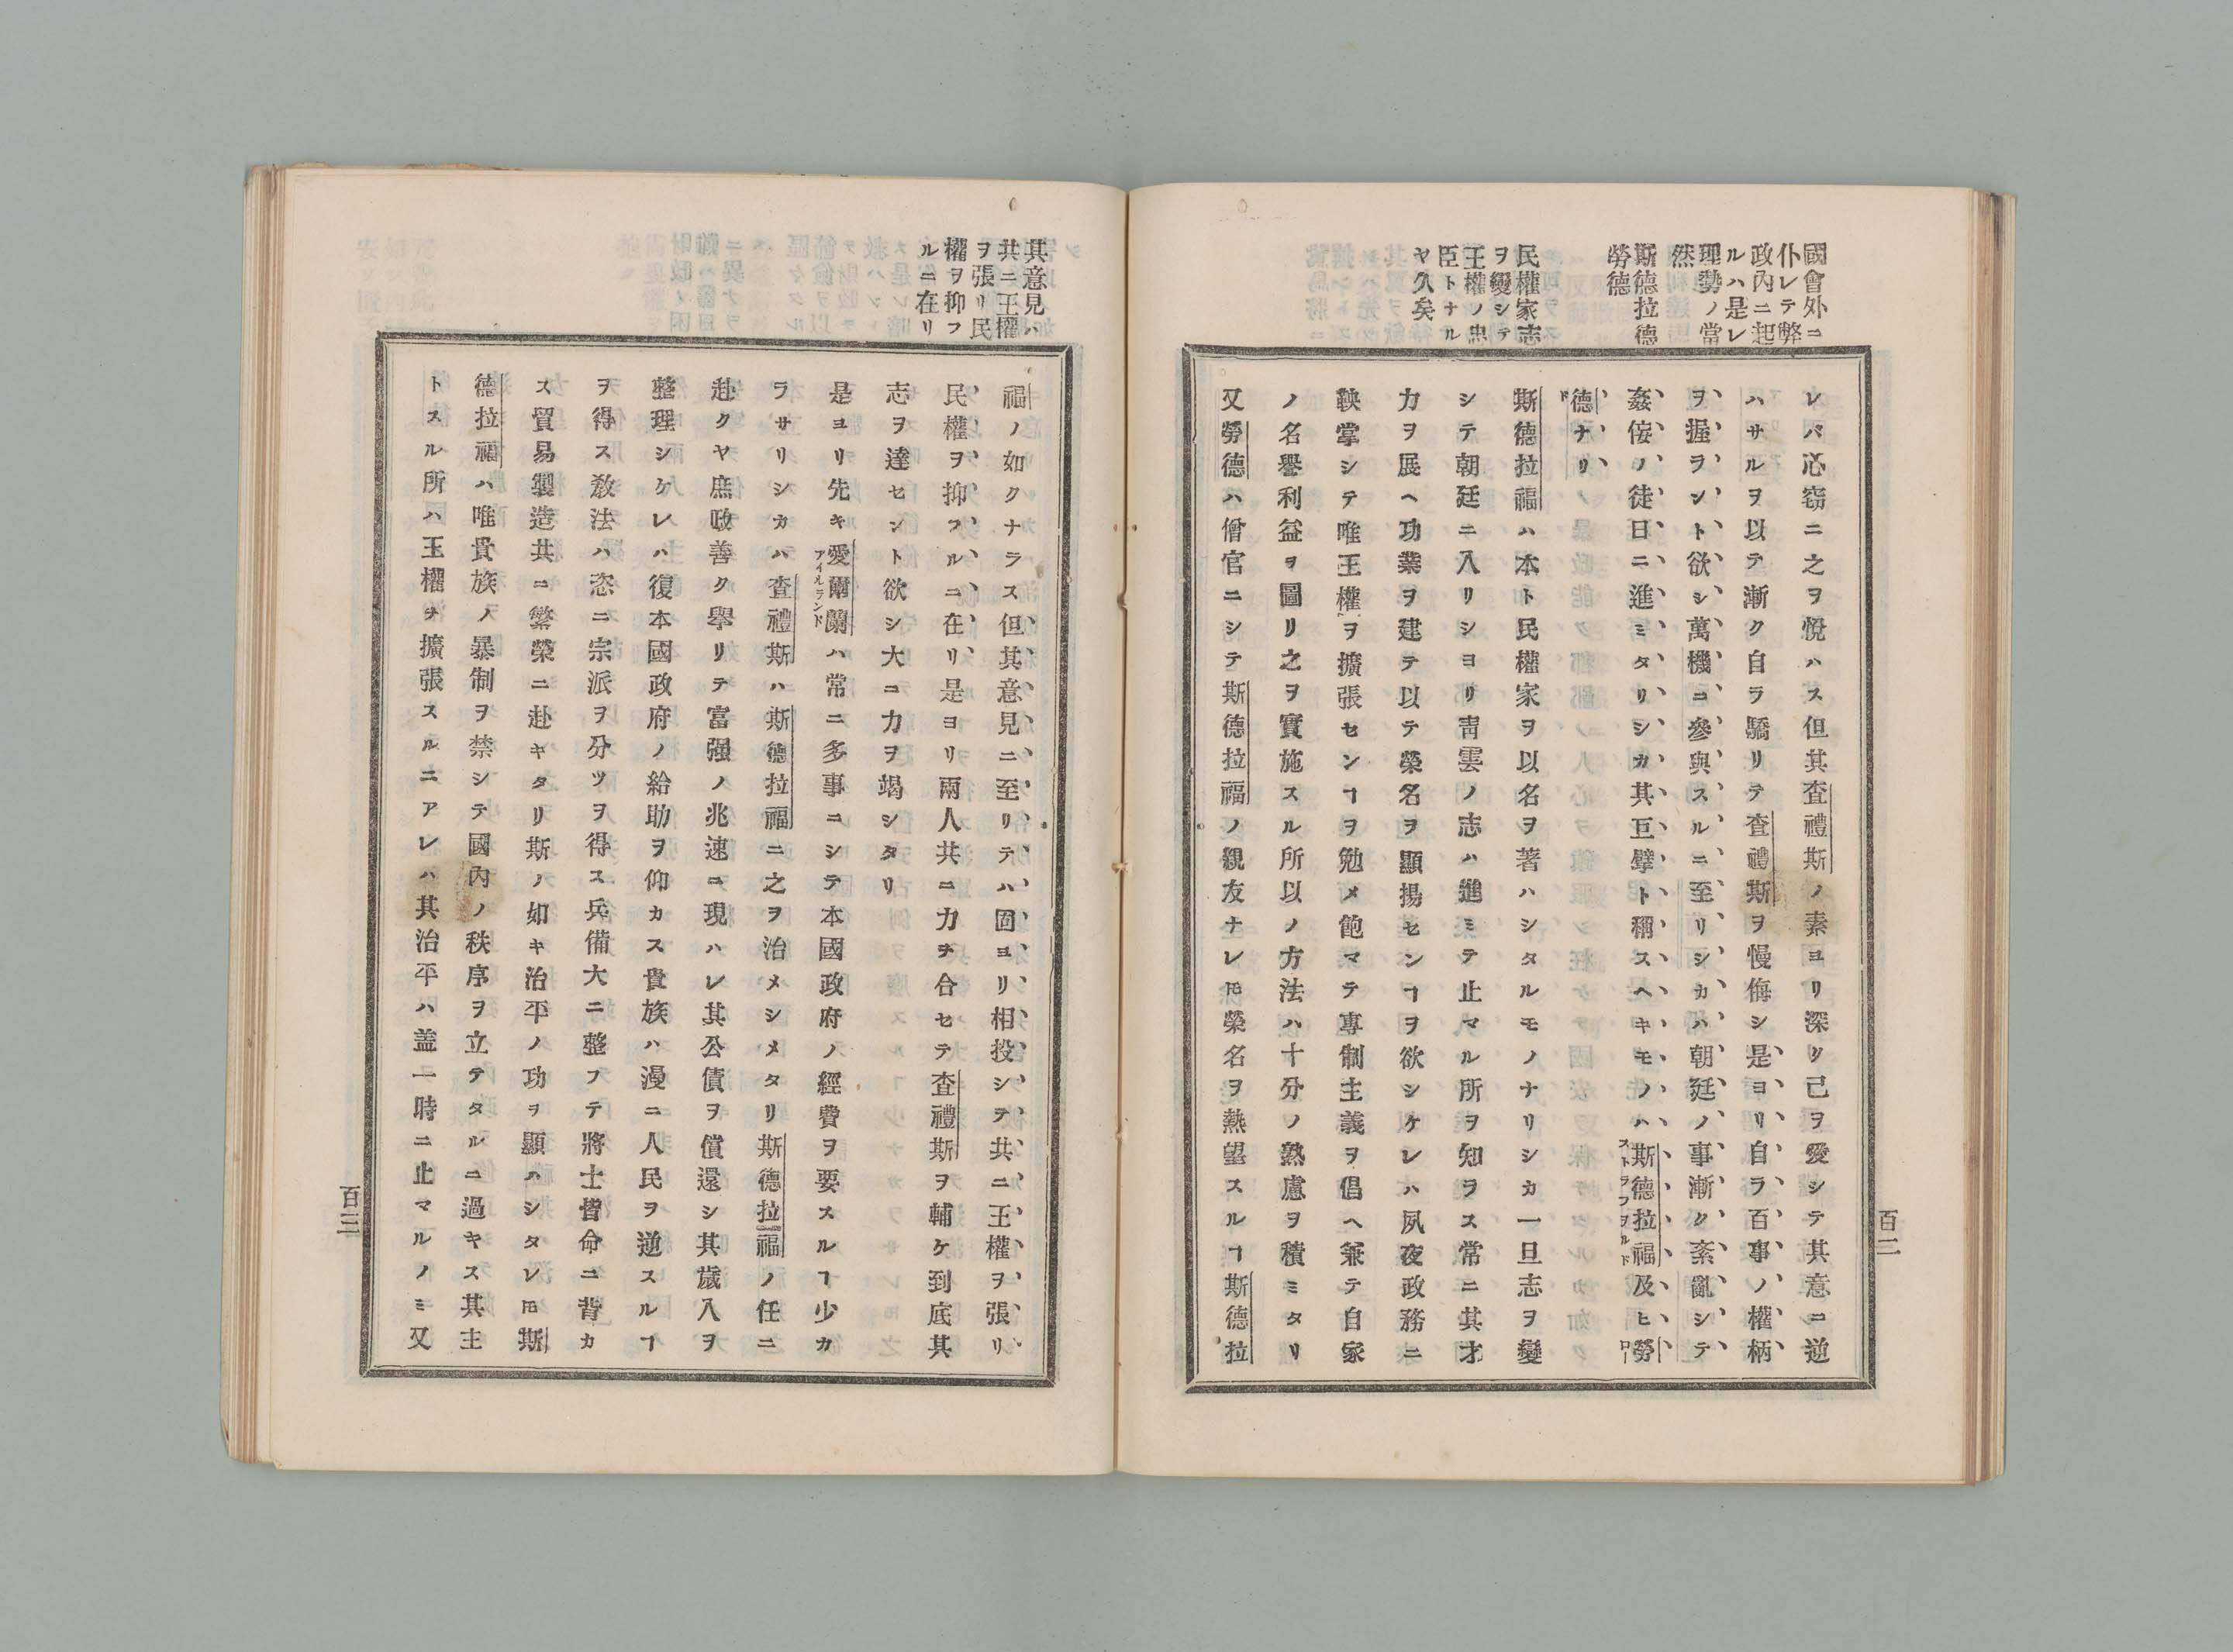 國會外ニ
仆レテ弊
政內ニ起
ルハ是レ
理勢ノ當
然
斯德拉德
勞德
民權家志
ヲ變シテ
王權ノ忠
臣トナル
ヤ久矣
レバ心窃ニ之ヲ悅ハス但其査禮斯ノ素ヨリ深ク己ヲ愛シテ其意ニ逆
ハサルヲ以テ漸ク自ラ驕リテ査禮斯ヲ慢侮シ是ヨリ自ラ百事ノ權柄
ヲ握ラント欲シ萬機ニ參與スルニ至リシカハ朝廷ノ事漸ク紊亂シテ
姦侫ノ徒日ニ進ミタリシカ其巨擘ト稱スヘキモノハ斯德拉福及ヒ勞
ストラフヲルド
ロー
德ナリ
ド
斯德拉福ハ本ト民權家ヲ以名ヲ著ハシタルモノナリシカ一旦志ヲ變
シテ朝廷ニ入リシヨリ靑雲ノ志ハ進ミテ止マル所ヲ知ラス常ニ其才
力ヲ展ヘ功業ヲ建テ以テ榮名ヲ顯揚センヿヲ欲シケレハ夙夜政務ニ
鞅掌シテ唯王權ヲ擴張センヿヲ勉メ飽マテ專制主義ヲ倡ヘ兼テ自家
ノ名譽利益ヲ圖リ之ヲ實施スル所以ノ方法ハ十分ノ熟慮ヲ積ミタリ
又勞德ハ僧官ニシテ斯德拉福ノ親友ナレ𪜈榮名ヲ熱望スルヿ斯德拉
百二
其意見ハ
共ニ王權
ヲ張リ民
權ヲ抑フ
ルニ在リ
福ノ如クナラス但其意見ニ至リテハ固ヨリ相投シテ共ニ王權ヲ張リ
民權ヲ抑フルニ在リ是ヨリ兩人共ニ力ヲ合セテ査禮斯ヲ輔ケ到底其
志ヲ達セント欲シ大ニ力ヲ竭シタリ
是ヨリ先キ愛爾蘭ハ常ニ多事ニシテ本國政府ノ經費ヲ要スルヿ少カ
アイルランド
ラサリシカハ査禮斯ハ斯德拉福ニ之ヲ治メシメタリ斯德拉福ノ任ニ
赴クヤ庶政善ク擧リテ富强ノ兆速ニ現ハレ其公債ヲ償還シ其歲入ヲ
整理シケレハ復本國政府ノ給助ヲ仰カス貴族ハ漫ニ人民ヲ逆スルヿ
ヲ得ス敎法ハ恣ニ宗派ヲ分ツヲ得ス兵備大ニ整フテ將士皆命ニ背カ
ス貿易製造共ニ繁榮ニ赴キタリ斯ノ如キ治平ノ功ヲ顯ハシタレ𪜈斯
德拉福ハ唯貴族ノ暴制ヲ禁シテ國內ノ秩序ヲ立テタルニ過キス其主
トスル所ハ王權ヲ擴張スルニアレハ其治平ハ盖一時ニ止マルノミ又
百三